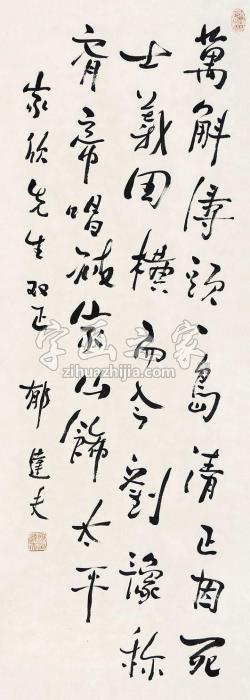 萬斛濤頭一島清正因死
士義田橫而今劉豫称
齊帝唱破家山飾太平
家欣先生双正 郁達夫
字画之家
zihuazhijia.com